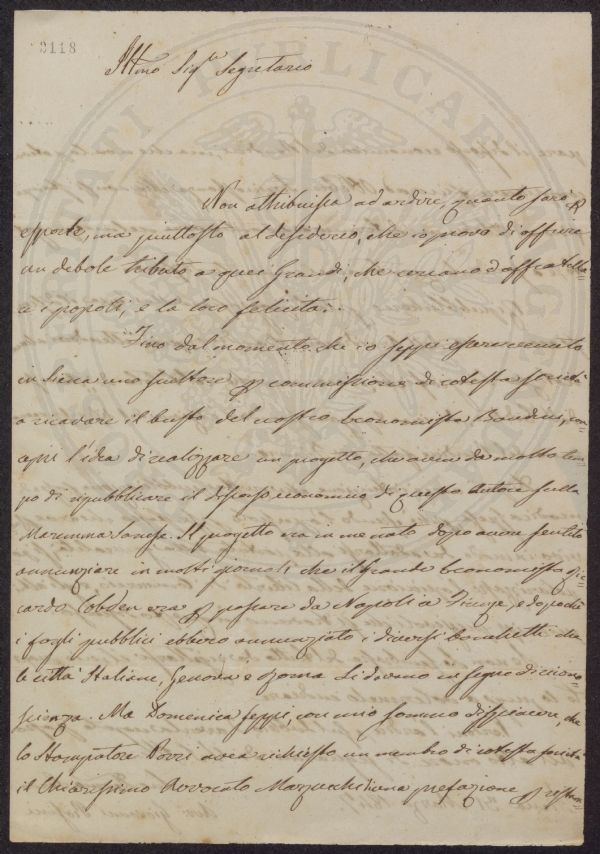 3118
Illmo Sigre Segretario
Non attribuisca ad ardire, quanto sarò p
esporle, ma piuttosto al desiderio, che io provo di offrire
un debole tributo a quei Grandi, che cercano d'affratella=
re i popoli, e la loro felicità.
Fino dal momento che io seppi essere venuto
in Siena uno scultore p commissione di cotesta società
a ricavare il busto del nostro Economista Bandini, con=
cepii l'idea di realizzare un progetto, che avea da molto tem=
po di ripubblicare il discorso economico di questo Autore sulla
Maremma Sanese. Il progetto era in me nato dopo avere sentito
annunziare in molti giornali che il Grande Economista Ric=
cardo Cobden era p passare da Napoli a Firenze, e dopo che
i fogli pubblici ebbero annunziato i diversi banchetti che
le città Italiane, Genova e Roma li davano in segno di ricono=
scienza. Ma Domenica seppi, con mio sommo dispiacere, che
lo Stampatore Porri avea richiesto un membro di cotesta società
il Chiarissimo Avvocato Mazzucchi una prefazione p